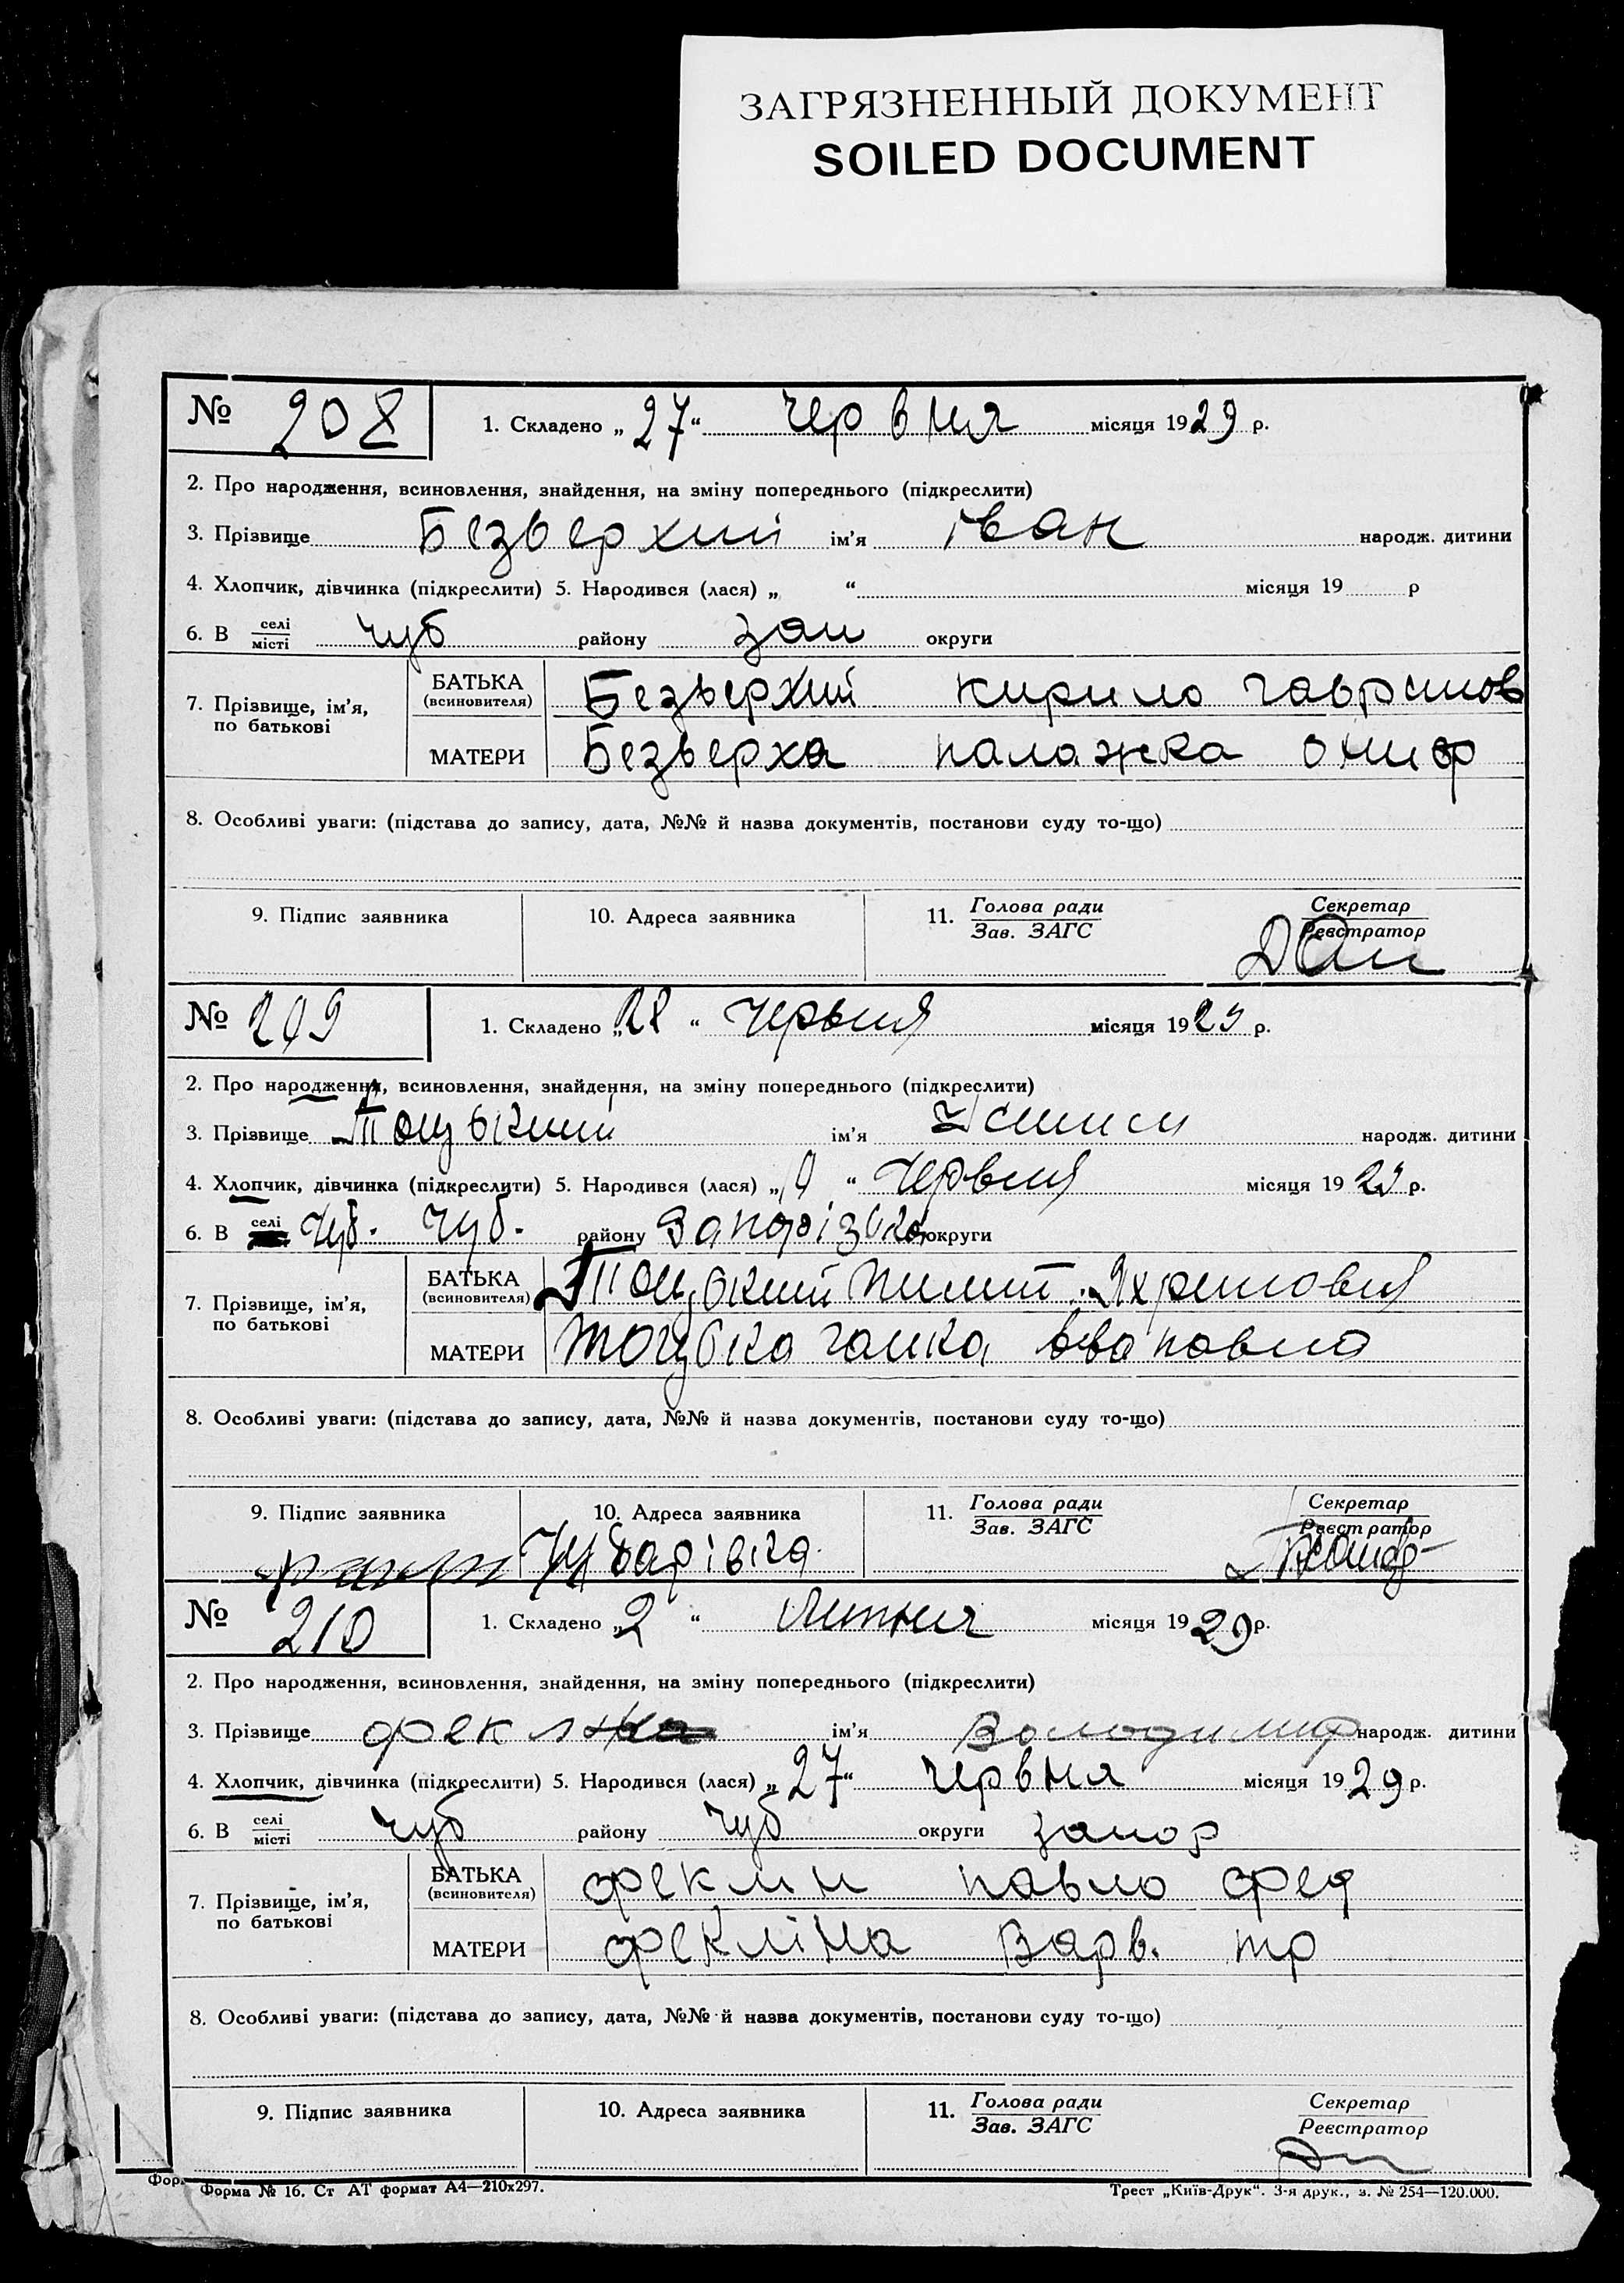 ЗАГРЯЗНЕННЫЙ ДОКУМЕНТ
SOILED DOCUMENT
№ 208 1. Складено „27“ червня місяця 1929 р.
2. Про народження, всиновлення, знайдення, на зміну попереднього (підкреслити)
3. Прізвище Безверхий ім’я іван народж. дитини
4. Хлопчик, дівчинка (підкреслити) 5. Народився (лася) „ “ місяця 19 р
6. В селі місті Чуб району зап округи
7. Прізвище, ім’я, по батькові БАТЬКА (всиновителя) Безверхий кирило гаврилов
МАТЕРИ Безверха палажка ониф
8. Особливі уваги: (підстава до запису, дата, №№ й назва документів, постанови суду то-що)
9. Підпис заявника 10. Адреса заявника 11. Голова ради Зав. ЗАГС Секретар Реєстратор
№ 209 1. Складено „28“ червня місяця 1929 р.
2. Про народження, всиновлення, знайдення, на зміну попереднього (підкреслити)
3. Прізвище ім’я народж. дитини
4. Хлопчик, дівчинка (підкреслити) 5. Народився (лася) „ “ Червня місяця 1929 р.
6. В селі Чуб. Чуб. району Запорізька округи
7. Прізвище, ім’я, по батькові БАТЬКА (всиновителя) Пилип
МАТЕРИ ганка
8. Особливі уваги: (підстава до запису, дата, №№ й назва документів, постанови суду то-що)
9. Підпис заявника 10. Адреса заявника Чубарівка 11. Голова ради Зав. ЗАГС Секретар Реєстратор
№ 210 1. Складено „2“ липня місяця 1929 р.
2. Про народження, всиновлення, знайдення, на зміну попереднього (підкреслити)
3. Прізвище ім’я Володимир народж. дитини
4. Хлопчик, дівчинка (підкреслити) 5. Народився (лася) „27“ червня місяця 1929 р.
6. В селі місті Чуб району Чуб округи запор
7. Прізвище, ім’я, по батькові БАТЬКА (всиновителя) феклин павло фед
МАТЕРИ фекліна Варв. тр
8. Особливі уваги: (підстава до запису, дата, №№ й назва документів, постанови суду то-що)
9. Підпис заявника 10. Адреса заявника 11. Голова ради Зав. ЗАГС Секретар Реєстратор
Форма № 16. Ст АТ формат А4—210х297. Трест „Київ-Друк“. 3-я друк., з. № 254—120.000.